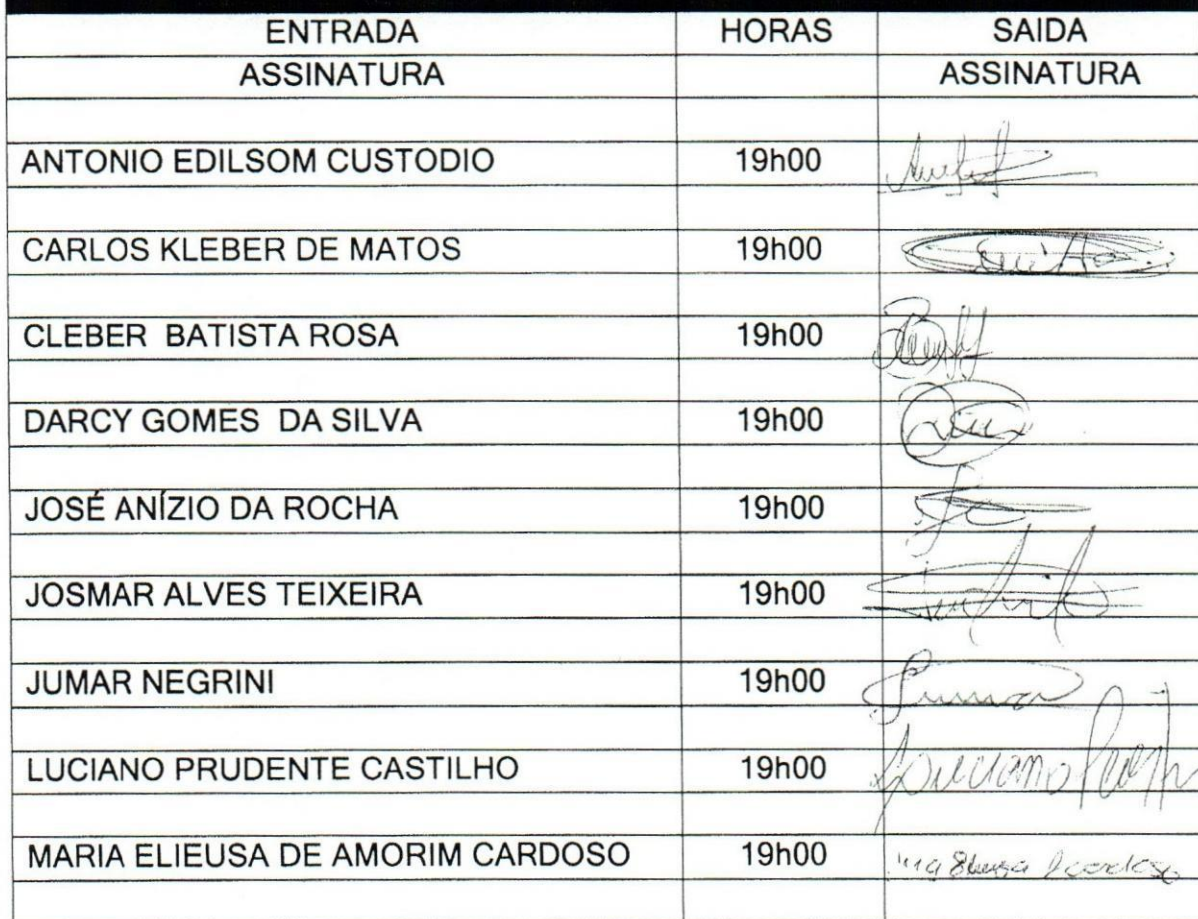 ENTRADA HORAS SAIDA
ASSINATURA ASSINATURA
ANTONIO EDILSOM CUSTODIO 19h00
CARLOS KLEBER DE MATOS 19h00
CLEBER BATISTA ROSA 19h00
DARCY GOMES DA SILVA 19h00
JOSÉ ANÍZIO DA ROCHA 19h00
JOSMAR ALVES TEIXEIRA 19h00
JUMAR NEGRINI 19h00
LUCIANO PRUDENTE CASTILHO 19h00 Luciano
MARIA ELIEUSA DE AMORIM CARDOSO 19h00